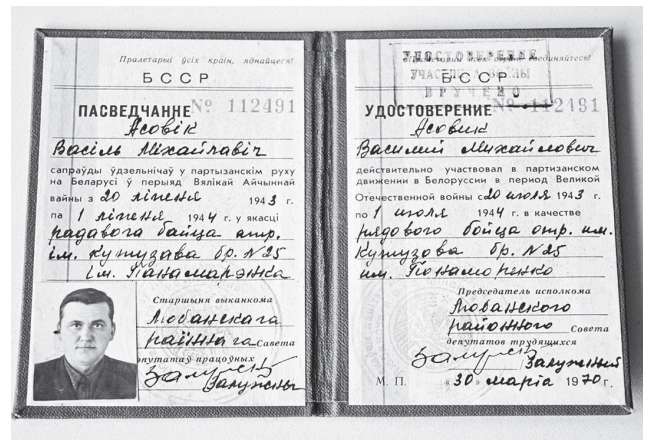 Пралетарыі ўсіх краін, яднайцеся!
БССР
ПАСВЕДЧАННЕ № 112491
Асовік
Васіль Міхайлавіч
сапраўды ўдзельнічаў у партызанскім руху
на Беларусі ў перыяд Вялікай Айчыннай
вайны з 20 ліпеня 1943 г.
па 1 ліпеня 1944 г. у якасці
радавога байца атр.
ім. Кутузава бр. N25
ім. Панамарэнка
Старшыня выканкома
Любанскага
раённага Савета
дэпутатаў працоўных
Залужны
УДОСТОВЕРЕНИЕ
УЧАСТНИКА ВОЙНЫ
ВРУЧЕНО
Пролетарии всех стран, соединяйтесь!
БССР
УДОСТОВЕРЕНИЕ № 112491
Асовик
Василий Михайлович
действительно участвовал в партизанском
движении в Белоруссии в период Великой
Отечественной войны с 20 июля 1943 г.
по 1 июля 1944 г. в качестве
рядового бойца отр. им.
Кутузова бр. N25
им. Понаморенко
Председатель исполкома
Любанского
районного Совета
депутатов трудящихся
Залужный
М. П. «30» марта 1970 г.